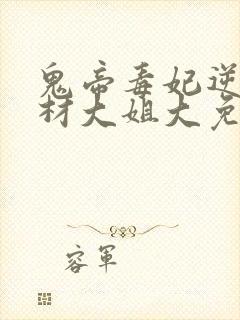 鬼帝毒妃逆
材大姐大免
容軍